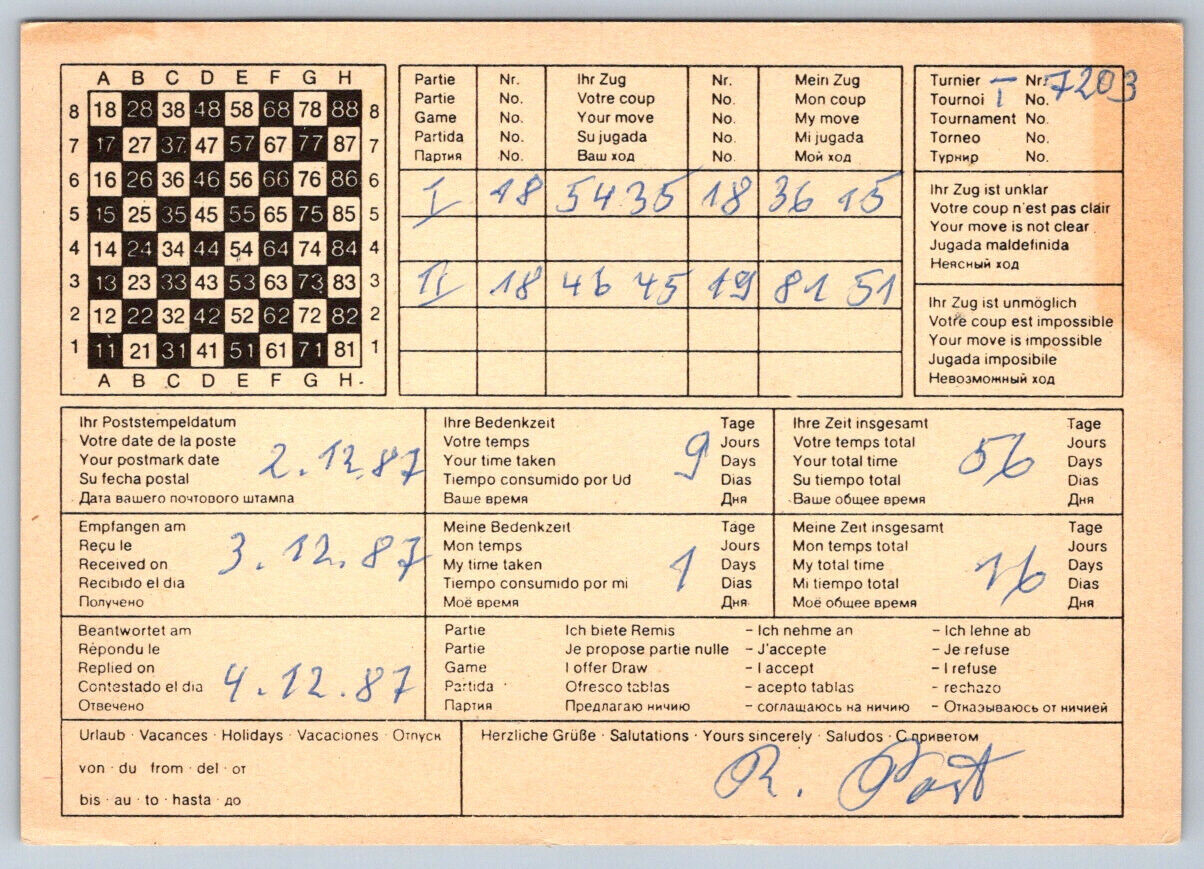 A B C D E F G H
8 18 28 38 48 58 68 78 88 8
7 17 27 37 47 57 67 77 87 7
6 16 26 36 46 56 66 76 86 6
5 15 25 35 45 55 65 75 85 5
4 14 24 34 44 54 64 74 84 4
3 13 23 33 43 53 63 73 83 3
2 12 22 32 42 52 62 72 82 2
1 11 21 31 41 51 61 71 81 1
A B C D E F G H
Partie Nr. Ihr Zug Nr. Mein Zug
Partie No. Votre coup No. Mon coup
Game No. Your move No. My move
Partida No. Su jugada No. Mi jugada
Партия No. Ваш ход No. Мой ход
I 18 54 35 18 36 15
II 18 46 45 19 81 51
Turnier I Nr. 7203
Tournoi No.
Tournament No.
Torneo No.
Турнир No.
Ihr Zug ist unklar
Votre coup n'est pas clair
Your move is not clear
Jugada maldefinida
Неясный ход
Ihr Zug ist unmöglich
Votre coup est impossible
Your move is impossible
Jugada imposibile
Невозможный ход
Ihr Poststempeldatum
Votre date de la poste
Your postmark date 2.12.87
Su fecha postal
Дата вашего почтового штампа
Ihre Bedenkzeit Tage
Votre temps Jours
Your time taken 9 Days
Tiempo consumido por Ud Dias
Ваше время Дня
Ihre Zeit insgesamt Tage
Votre temps total Jours
Your total time 56 Days
Su tiempo total Dias
Ваше общее время Дня
Empfangen am
Reçu le
Received on 3.12.87
Recibido el dia
Получено
Meine Bedenkzeit Tage
Mon temps Jours
My time taken 1 Days
Tiempo consumido por mi Dias
Моё время Дня
Meine Zeit insgesamt Tage
Mon temps total Jours
My total time 16 Days
Mi tiempo total Dias
Моё общее время Дня
Beantwortet am
Répondu le
Replied on 4.12.87
Contestado el dia
Отвечено
Partie Ich biete Remis - Ich nehme an - Ich lehne ab
Partie Je propose partie nulle - J'accepte - Je refuse
Game I offer Draw - I accept - I refuse
Partida Ofresco tablas - acepto tablas - rechazo
Партия Предлагаю ничию - соглашаюсь на ничию - Отказываюсь от ничией
Urlaub · Vacances · Holidays · Vacaciones · Отпуск
von · du from · del · от
bis · au · to · hasta · до
Herzliche Grüße · Salutations · Yours sincerely · Saludos · С приветом
R.